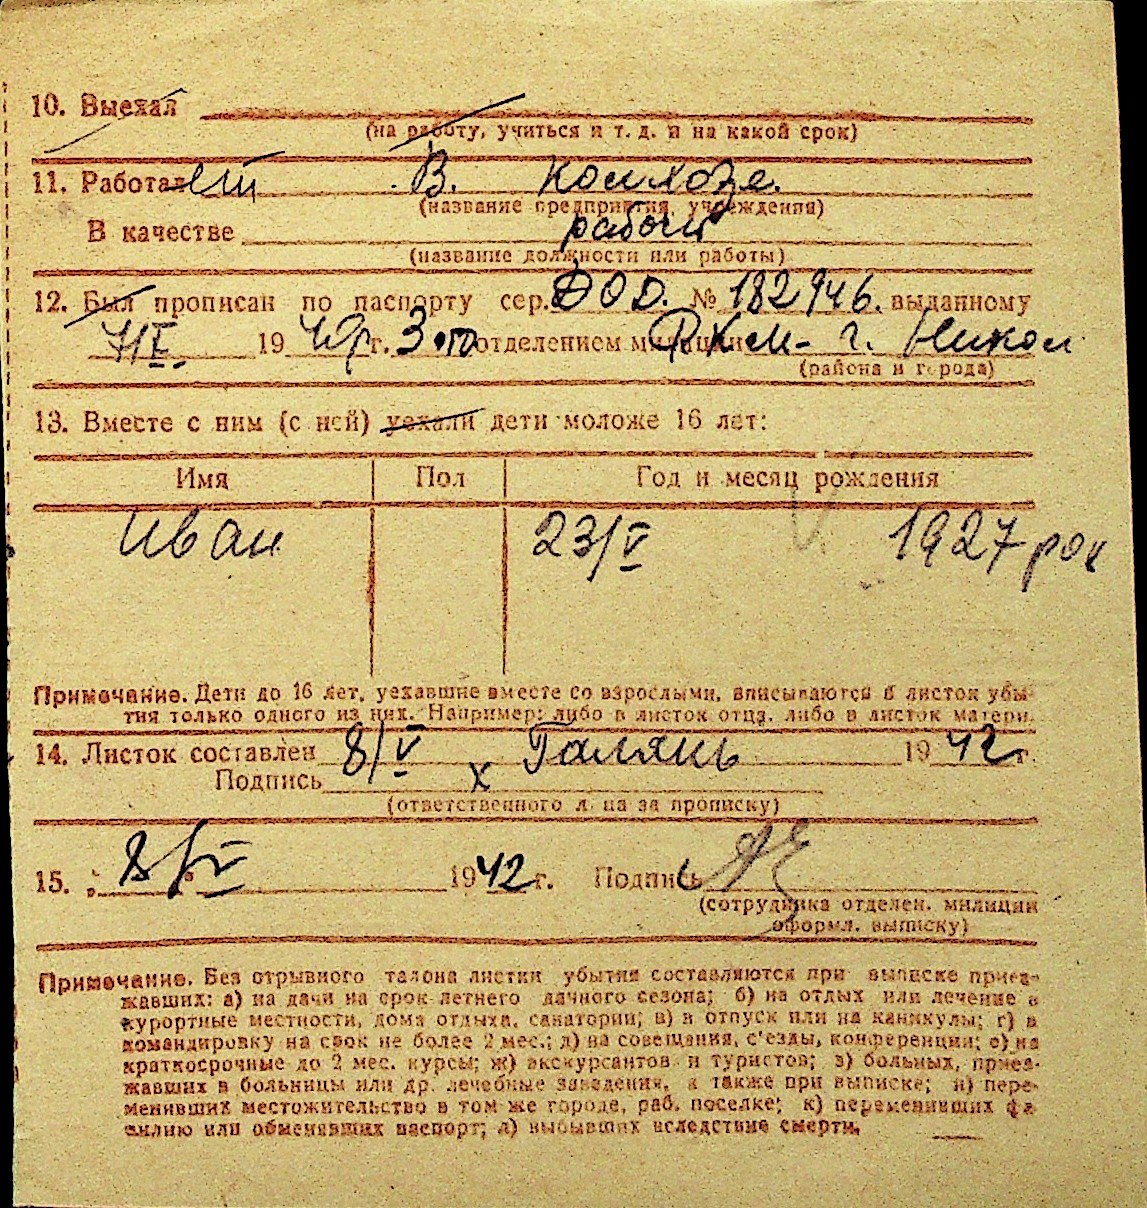 10. Выехал
(на работу, учиться и т. д. и на какой срок)
11. Работает В. колхозе.
(название предприятия, учреждения)
В качестве рабочий
(название должности или работы)
12. Был прописан по паспорту сер. № 182946. выданному
7/IX. 19 40 г. 3 ого отделением милиции РКМ - г. Никол
(района и города)
13. Вместе с ним (с ней) уехали дети моложе 16 лет:
Имя Пол Год и месяц рождения
Иван 23/V 1927 рок
Примечание. Дети до 16 лет, уехавшие вместе со взрослыми, вписываются в листок убы-
тия только одного из них. Например: либо в листок отца, либо в листок матери.
14. Листок составлен 8/V Галянь 19 42 г.
Подпись х
(ответственного лица за прописку)
15. 8/V 19 42 г. Подпись
(сотрудника отделен. милиции
оформл. выписку)
Примечание. Без отрывного талона листки убытия составляются при выписке приез-
жавших: а) на дачи на срок летнего дачного сезона; б) на отдых или лечение в
курортные местности, дома отдыха, санатории; в) в отпуск или на каникулы; г) в
командировку на срок не более 2 мес.; д) на совещания, с'езды, конференции; е) на
краткосрочные до 2 мес. курсы; ж) экскурсантов и туристов; з) больных, приез-
жавших в больницы или др. лечебные заведения, а также при выписке; и) пере-
менивших местожительство в том же городе, раб. поселке; к) переменивших фа-
милию или обменявших паспорт; л) выбывших вследствие смерти.